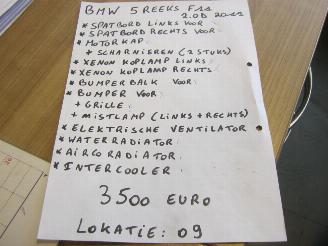 BMW 5 REEKS F11
2.0D 2011
* SPATBORD LINKS VOOR
* SPATBORD RECHTS VOOR
* MOTORKAP
+ SCHARNIEREN (2 STUKS)
* XENON KOPLAMP LINKS
* XENON KOPLAMP RECHTS
* BUMPERBALK VOOR
* BUMPER VOOR
+ GRILLE
+ MISTLAMP (LINKS + RECHTS)
* ELEKTRISCHE VENTILATOR
* WATERRADIATOR
* AIRCORADIATOR
* INTERCOOLER
3500 EURO
LOKATIE: 09